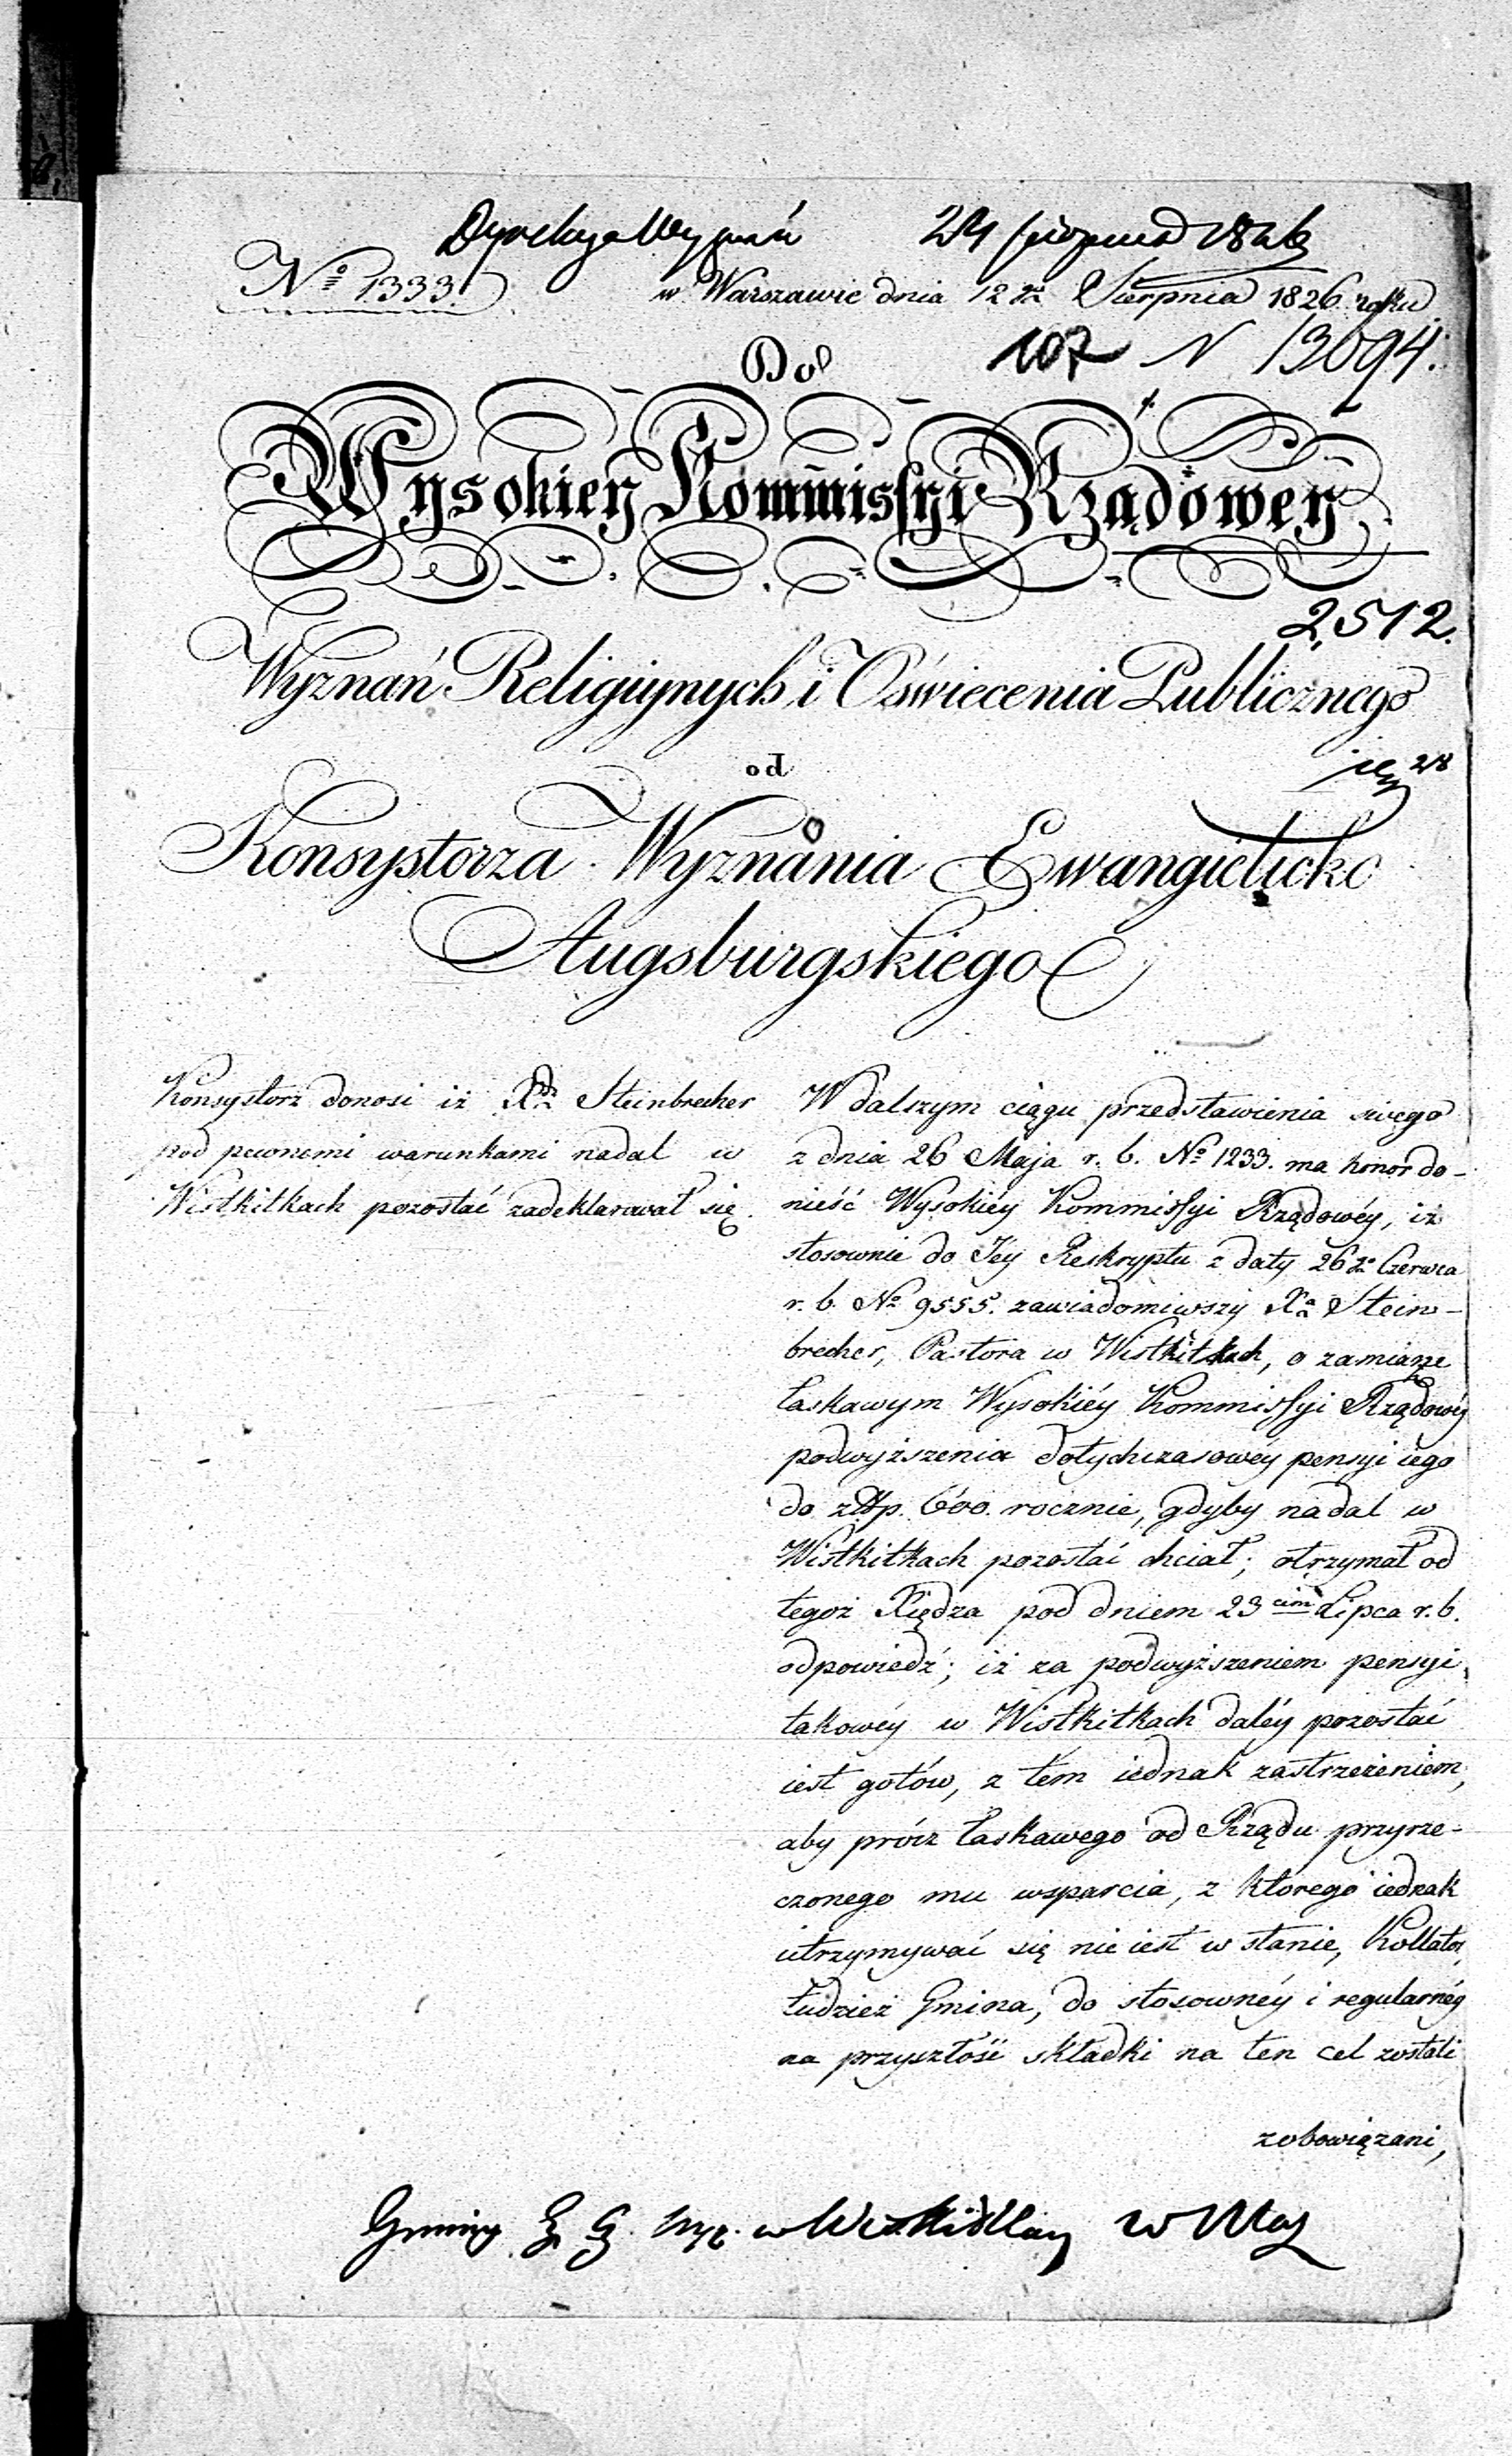 Dyrekcya Wyznań 24 sierpnia 1826
Nº 1333.
w Warszawie dnia 12go Sierpnia 1826 roku
Do
107 N 13694.
Wysokiey Kommissyi Rządowey
2512.
Wyznań Religiynych i Oświecenia Publicznego
od
Konsystorza Wyznania Ewangielicko
Augsburgskiego
Konsystorz donosi iż Xdz Steinbrecher
pod pewnemi warunkami nadal w
Wistkitkach pozostać zadeklarował się.
W dalszym ciągu przedstawienia swego
z dnia 26 Maja r. b. Nº 1233. ma honor do-
nieść Wysokiéy Kommissyi Rządowéy, iż
stosownie do Jéy Reskryptu z daty 26go Czerwca
r. b. Nº 9555. zawiadomiwszy Xa Stein-
brecher, Pastora w Wistkitkach, o zamiarze
łaskawym Wysokiéy Kommissyi Rządowéy
podwyższenia dotychczasowéy pensyi iego
do złłp. 600. rocznie, gdyby nadal w
Wistkitkach pozostać chciał; otrzymał od
tegoż Xiędza pod dniem 23cim Lipca r. b.
odpowiedź; iż za podwyższeniem pensyi
takowéy w Wistkitkach daléy pozostać
iest gotów, z tém iednak zastrzeżeniem,
aby prócz łaskawego od Rządu przyrze-
czonego mu wsparcia, z którego iednak
utrzymywać się nie iest w stanie, Kollator,
tudzież Gmina, do stosownéy i regularnéy
na przyszłość składki na ten cel zostali
zobowiązani,
Gminy E. A. w Wiskitkach w Maz